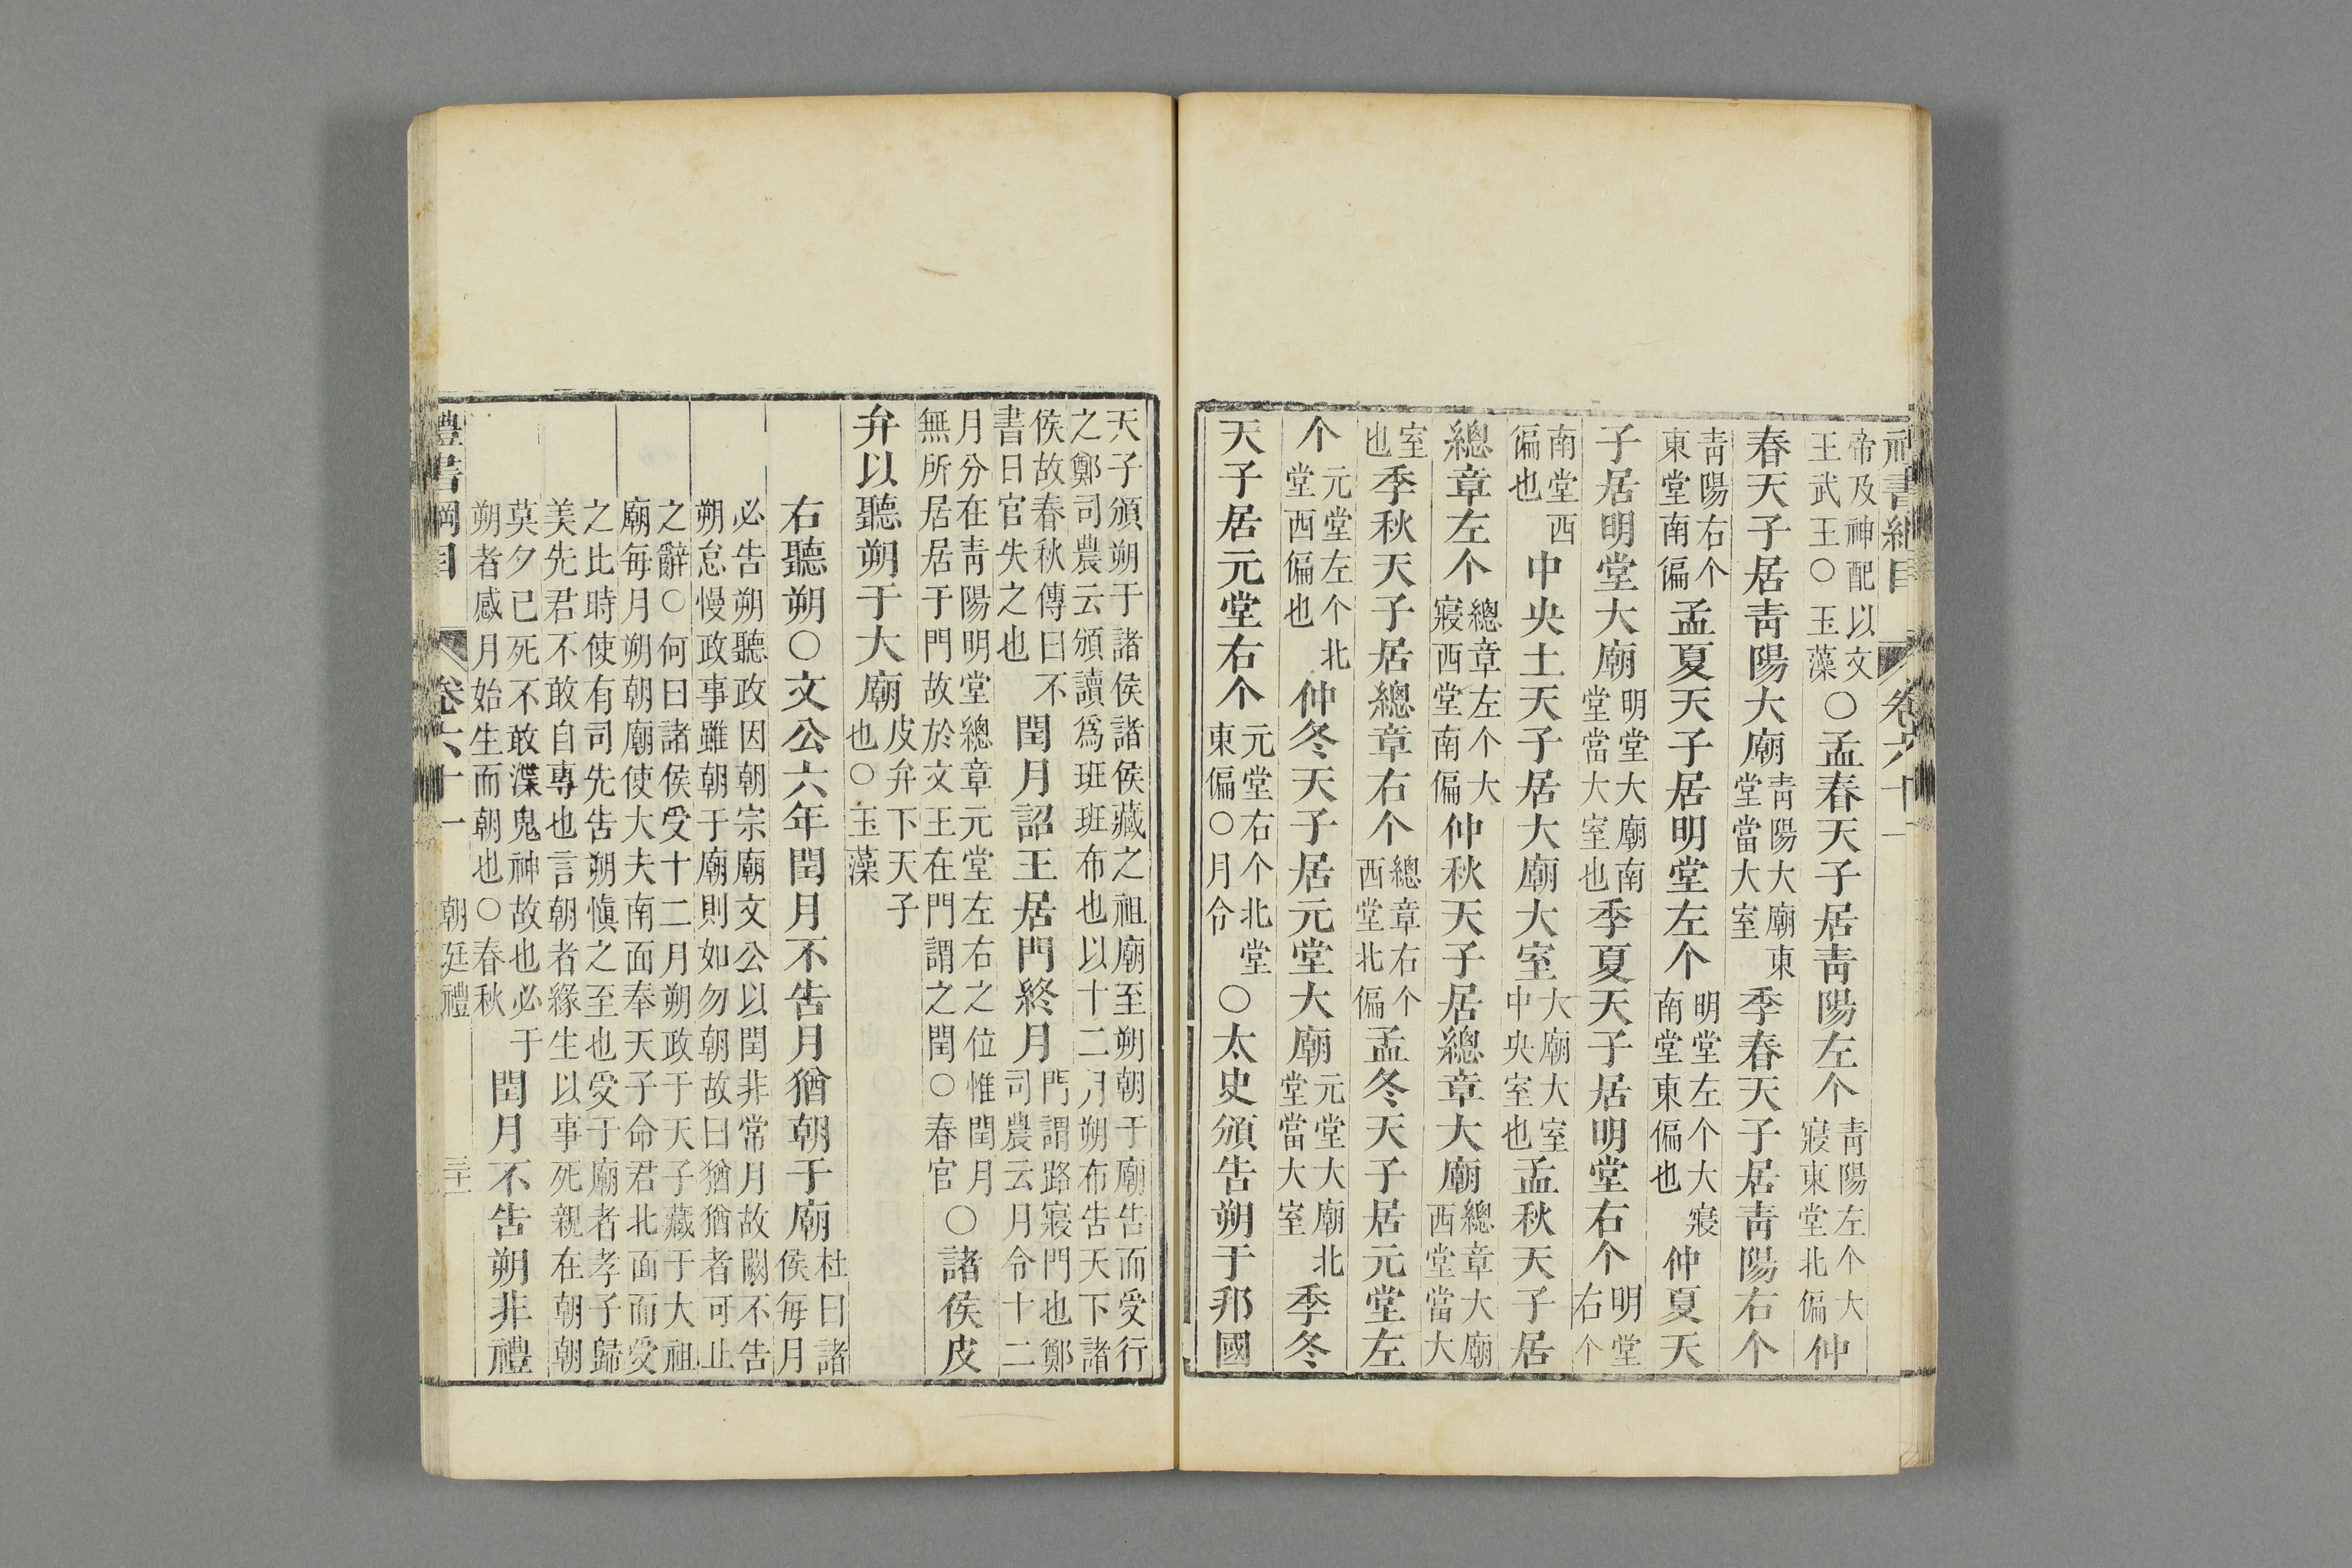 禮書綱目 卷六十一
帝及神配以文王武王○玉藻○孟春天子居靑陽左个靑陽左个大寢東堂北偏仲
春天子居靑陽大廟靑陽大廟東堂當大室季春天子居靑陽右个
靑陽右个東堂南偏孟夏天子居明堂左个明堂左个大寢南堂東偏也仲夏天
子居明堂大廟明堂大廟南堂當大室也季夏天子居明堂右个明堂右个
南堂西偏也中央土天子居大廟大室大廟大室中央室也孟秋天子居
總章左个總章左个大寢西堂南偏仲秋天子居總章大廟總章大廟西堂當大
室也季秋天子居總章右个總章右个西堂北偏孟冬天子居元堂左
个元堂左个北堂西偏也仲冬天子居元堂大廟元堂大廟北堂當大室季冬
天子居元堂右个元堂右个北堂東偏○月令○太史頒告朔于邦國
天子頒朔于諸侯諸侯藏之祖廟至朔朝于廟告而受行之鄭司農云頒讀爲班班布也以十二月朔布告天下諸
侯故春秋傳曰不書日官失之也閏月詔王居門終月門謂路寢門也鄭司農云月令十二
月分在靑陽明堂總章元堂左右之位惟閏月無所居居于門故於文王在門謂之閏○春官○諸侯皮
弁以聽朔于大廟皮弁下天子也○玉藻
右聽朔○文公六年閏月不告月猶朝于廟杜曰諸侯每月
必告朔聽政因朝宗廟文公以閏非常月故闕不告朔怠慢政事雖朝于廟則如勿朝故曰猶猶者可止
之辭○何曰諸侯受十二月朔政于天子藏于大祖廟每月朔朝廟使大夫南面奉天子命君北面而受
之比時使有司先告朔愼之至也受于廟者孝子歸美先君不敢自專也言朝者緣生以事死親在朝朝
莫夕已死不敢渫鬼神故也必于朔者感月始生而朝也○春秋閏月不告朔非禮
禮書綱目 卷六十一 朝廷禮